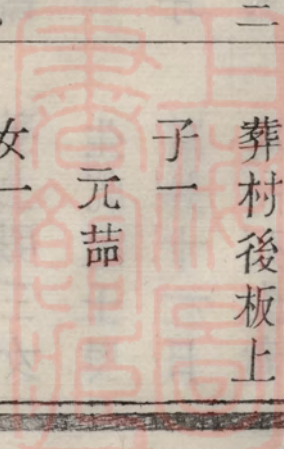 二
葬村後板上
子一
元喆
女一